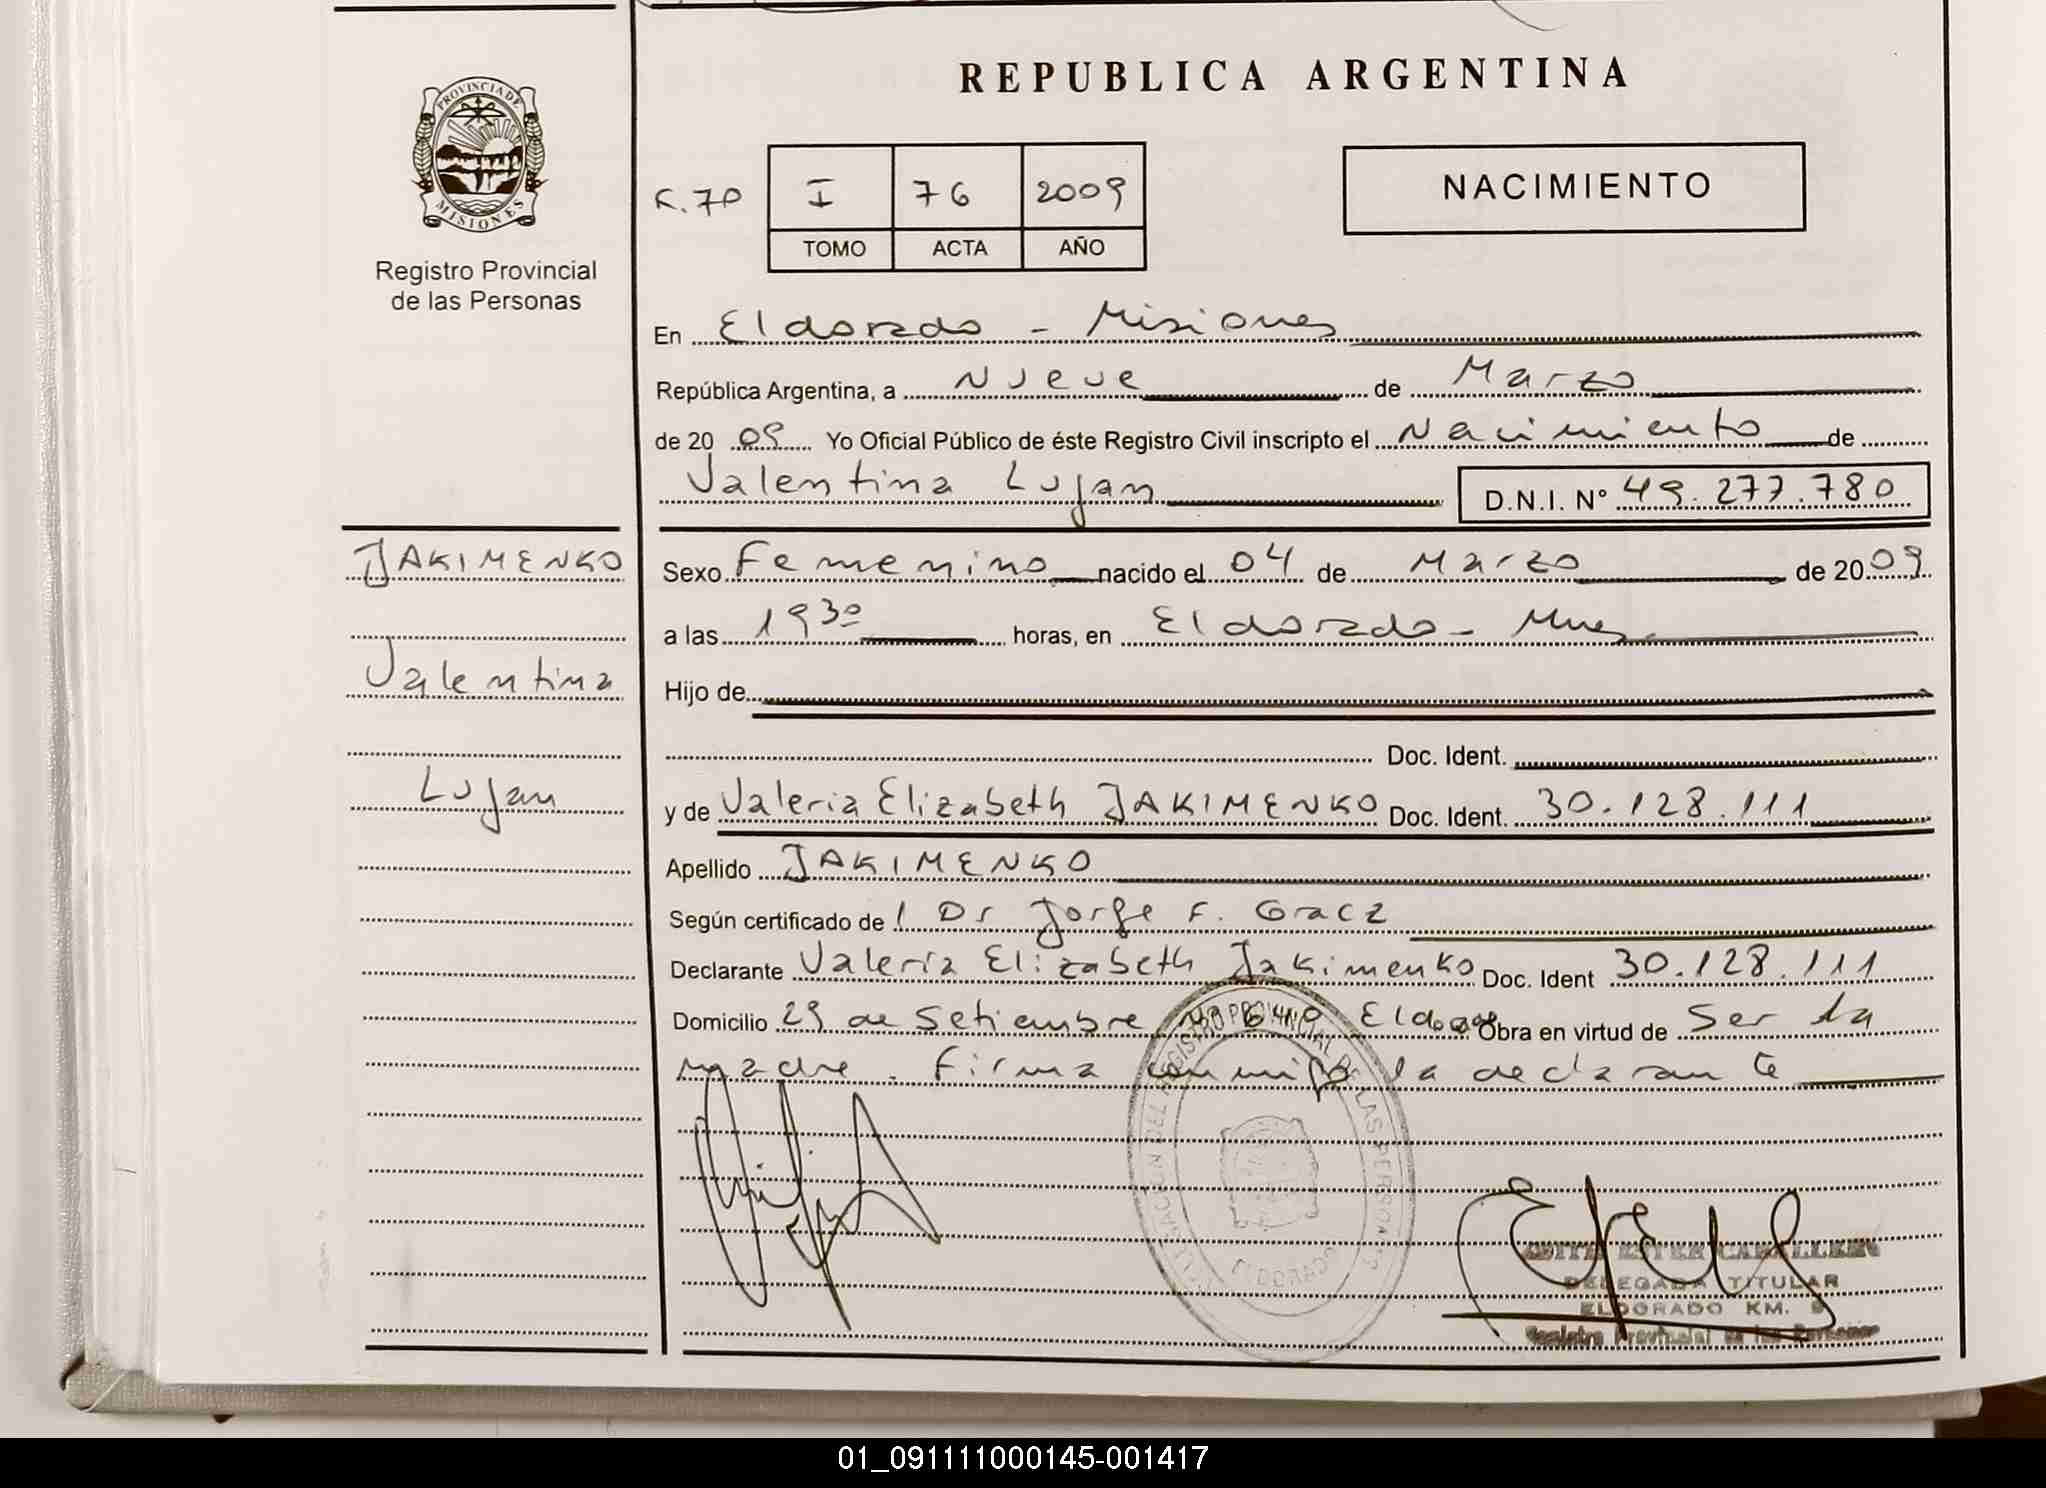 REPUBLICA ARGENTINA
PROVINCIA DE
MISIONES
Registro Provincial
de las Personas
I 76 2009
TOMO ACTA AÑO
NACIMIENTO
En Eldorado - Misiones
República Argentina, a Nueve de Marzo
de 20 09 Yo Oficial Público de éste Registro Civil inscripto el Nacimiento de
Valentina Lujan D.N.I. N° 49.277.780
JAKIMENKO
Valentina
Lujan
Sexo Femenino nacido el 04 de Marzo de 20 09
a las 19 30 horas, en Eldorado - Mnes
Hijo de
Doc. Ident.
y de Valeria Elizabeth JAKIMENKO Doc. Ident. 30.128.111
Apellido JAKIMENKO
Según certificado de l Dr Jorge F. Gracz
Declarante Valeria Elizabeth Jakimenko Doc. Ident 30.128.111
Domicilio 29 de Setiembre Nº 640 Obra en virtud de Ser la
madre. Firma conmigo la declarante
DEL REGISTRO PROVINCIAL DE LAS PERSONAS
ELDORADO
DELEGADA TITULAR
ELDORADO KM. 9
Registro Provincial de las Personas
01_091111000145-001417